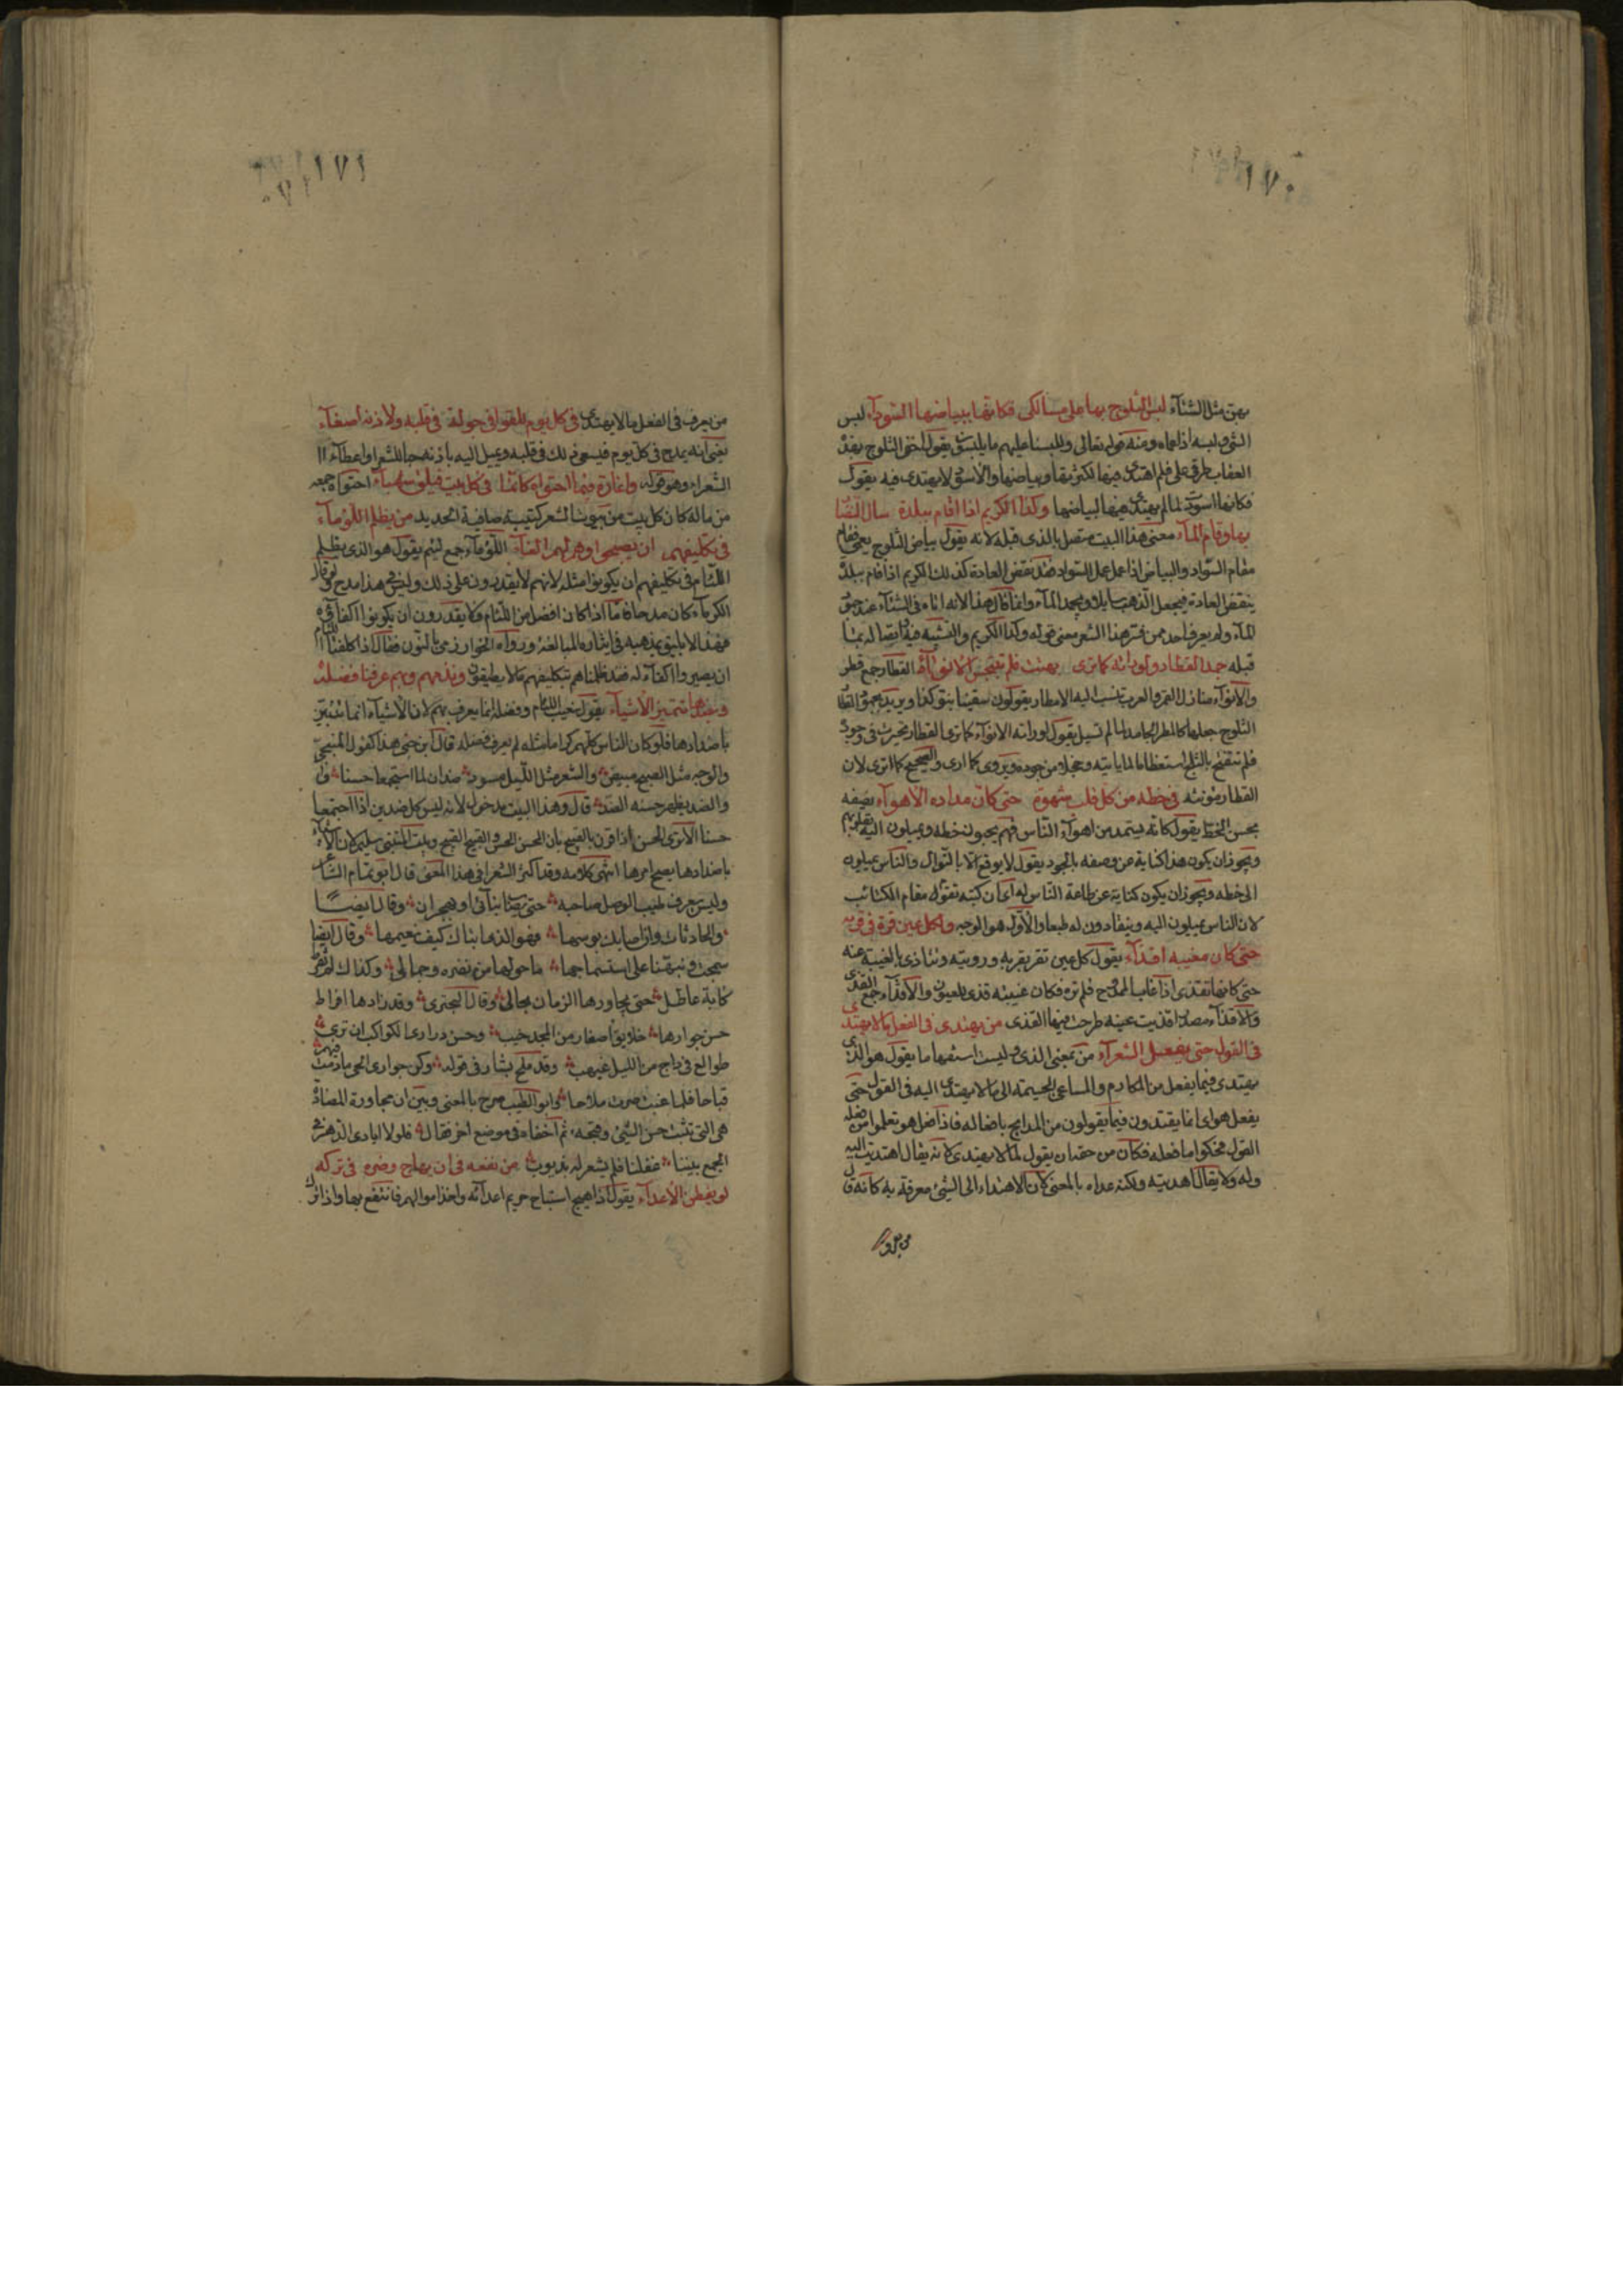 ١٧٠
بهن مثل الشتاء لبس الثلوج بها على مسالكى فكانها ببياضها السوداء لبس
الشئ ولبسه اذا عماه ومنه قوله تعالى وللبسنا عليهم ما يلبسون يقول اخفى الثلوج بهذه
العقاب طرقى على فلم اهتد فيها لكثرتها وبياضها والاسود لا يهتدى فيه يقول
فكانها اسودت لما لم يهتد فيها لبياضها وكذا الكريم اذا اقام ببلدة سال النضار
بها وقام الماء معنى هذا البيت متصل بالذى قبله لانه يقول بياض الثلوج يعنى قام
مقام السواد والبياض اذا عمل عمل السواد فقد نقض العادة كذلك الكريم اذا اقام ببلد
ينقض العادة فيجعل الذهب سايلا ويجمد الماء وانما قال هذا لانه اتاه فى الشتاء عند جمود
الماء ولم يعرف احد ممن فسر هذا الشعر معنى قوله وكذا الكريم والتشبيه فيه واتصاله بما
قبله جمد القطار ولو راته كما ترى بهتت فلم تتبجس الانواء القطار جمع قطر
والانواء منازل القمر والعرب تنسب اليه الامطار يقولون سقينا بنوء كذا ويريد بجمود القطار
الثلوج جعلها كالمطر الجامد لما لم تسيل يقول لو راته الانواء كما ترى القطار تحيرت فى وجوده
فلم تتفتح بالثلج استعظاما لما ياتيه وخجلا من جوده ويروى كما ارى والصحيح كما ترى لان
القطار مؤنثه فى خطه من كل قلب شهوة حتى كان مداده الاهواء يصفه
بحسن الخط يقول كانه يستمد من اهواء الناس فهم يحبون خطه ويميلون اليه بقلوبهم
ويجوز ان يكون هذا كناية عن وصفه بالجود يقول لا يوقع الا بالنوال والناس يميلون
الى خطه ويجوز ان يكون كناية عن طاعة الناس له اى ان كتبه تقوم مقام الكتائب
لان الناس يميلون اليه وينقادون له طبعا والاول هو الوجه ولكل عين قرة فى قربه
حتى كان مغيبه اقذاء يقول كل عين تقر بقربه ورويته وتتاذى بالغيبة عنه
حتى كانها تقذى اذا غاب الممدوح فلم تره فكان غيبته قذى للعيون والاقذاء جمع القذى
والاقذاء مصدر اقذيت عينه طرحت فيها القذى من يهتدى فى الفعل ما لا يهتدى
فى القول حتى يفعل الشعراء من بمعنى الذى وليست استفهاما يقول هو الذى
يهتدى فيما يفعل من المكارم والمساعى الجسيمه الى ما لا يهتدى اليه فى القول حتى
يفعل هو اى انما يقتدون فيما يقولون من المدايح بافعاله فاذا فعل هو تعلموا من فعله
القول فحكوا ما فعله فكان من حقه ان يقول لما لا يهتدى لانه يقال اهتديت اليه
وله ولا يقال اهديته ولكنه عداه بالمعنى لان الاهتداء الى الشئ معرفة به كانه قال
من يعرف
١٧١
من يعرف فى الفعل ما لا يهتدى فى كل يوم للقوافى جولة فى قلبه ولاذنه اصغاء
يعنى انه يمدح فى كل يوم فيسعى ذلك فى قلبه ويميل اليه باذنه حبا للشعر واعطاء
الشعراء وهو قوله واغارة فيما احتواه كانما فى كل بيت فيلق شهباء احتواه جمعه
من ماله كان كل بيت من بيوت الشعر كتيبة صافية الحديد من يظلم اللؤماء
فى تكليفهم ان يصبحوا وهم له اكفاء اللؤماء جمع لئيم يقول هو الذى يظلم
اللئام فى تكليفهم ان يكونوا مثله لانهم لا يقدرون على ذلك وليس فى هذا مدح ولو قال
الكرماء كان مدحا فاما اذا كان افضل من اللئام ولا يقدرون ان يكونوا اكفاءه
فهذا لا يليق بمذهبه فى ايثاره المبالغة ورواه الخوارزمى بالنون فقال اذا كلفنا اللئام
ان يصيروا اكفاء له فقد ظلمناهم بتكليفهم ما لا يطيقون ونذيمهم وبهم عرفنا فضله
وبضدها تتميز الاشياء يقول نعيب اللئام وفضله انما يعرف بهم لان الاشياء انما تتبين
باضدادها فلو كان الناس كلهم كراما مثله لم يعرف فضله قال ابن جنى هذا كقول المنبجى
والوجه مثل الصبح مبيض والشعر مثل الليل مسود ضدان لما استجمعا حسنا
والضد يظهر حسنه الضد قال وهذا البيت مدخول لانه ليس كل ضدين اذا اجتمعا
حسنا الا ترى الحسن اذا قرن بالقبيح بان الحسن الحسن والقبيح القبيح وبيت المتنبى سليم لان الاشياء
باضدادها يصح امرها انتهى كلامه وقد اكثر الشعراء فى هذا المعنى قال ابو تمام الشاعر
وليس يعرف طيب الوصل صاحبه حتى يصاب بنأى او هجران وقال ايضا
والحادثات وان اصابك بوسها فهو الذى انباك كيف نعيمها وقال ايضا
سمجت ونبهنا على استسماجها ما حولها من نضرة وجمال وكذاك لم تفرط
كآبة عاطل حتى يجاورها الزمان بحالى وقال البحترى وقد زادها افراط
حسن جوارها خلايق اصفار من المجد خيب وحسن درارى الكواكب ان ترى
طوالع فى داج من الليل غيهب وقد ملح بشار فى قوله وكن جوارى الحى ما دمت فيهم
قباحا فلما غبت صرن ملاحا وابو الطيب صرح بالمعنى وبين ان مجاورة المضادة
هى التى تثبت حسن الشئ وقبحه ثم اخفاه فى موضع اخر فقال فلولا ايادى الدهر فى
الجمع بيننا غفلنا فلم يشعر له بذنوب من نفعه فى ان يهاج وضره فى تركه
لو يفطن الاعداء يقول اذا هيج استباح حريم اعدائه واخذ اموالهم فانتفع بها واذا ترك